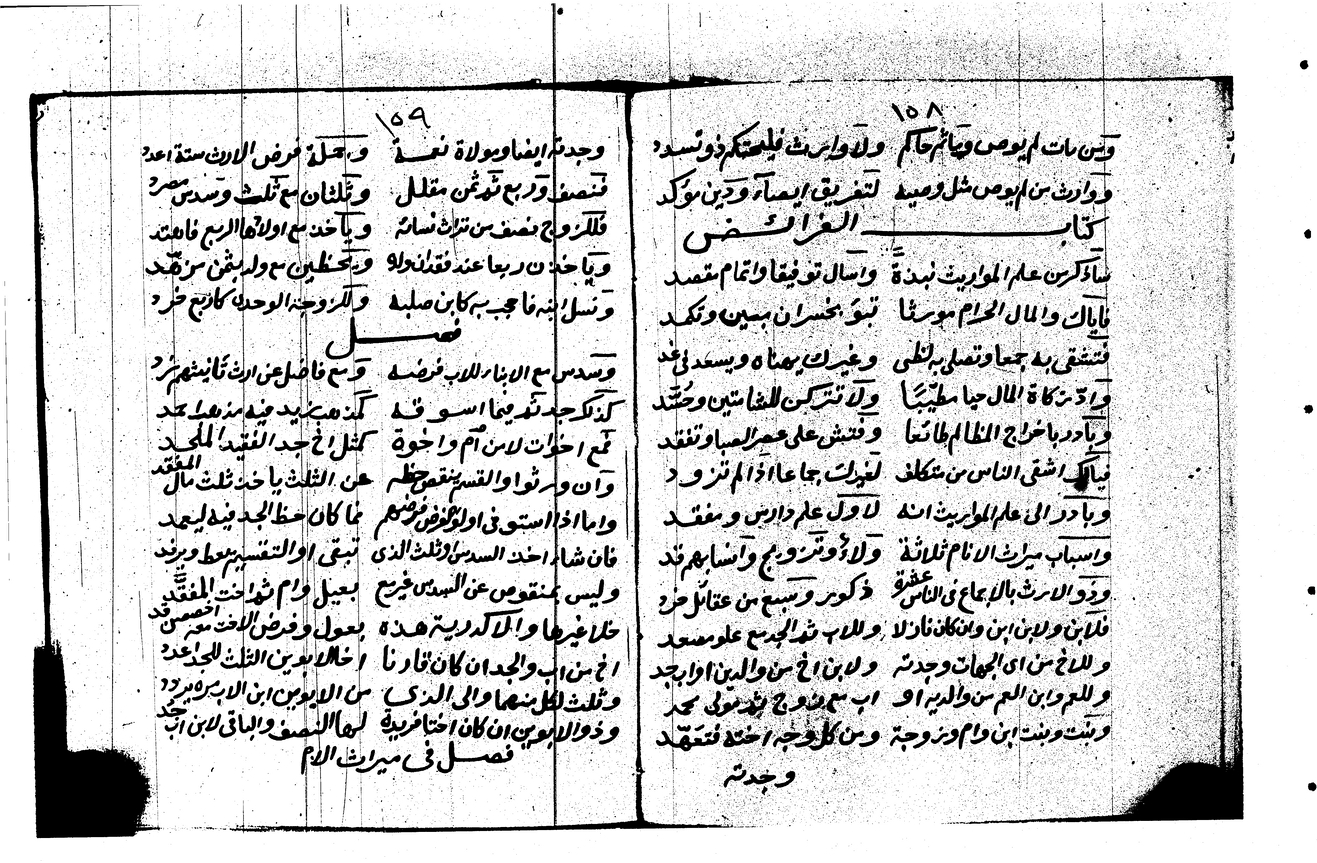 ١٥٨
ومن مات لم يوص ويأتم حاكم ولا وارث فليحتكم ذو تسدد
ووارث من لم يوص مثل وصيه لتفريق ايصاء ودين مؤكد
كتاب الفرائض
سأذكر من علم المواريث نبذة واسال توفيقا واتمام مقصد
فاياك والمال الحرام مورثا تبؤ بخسران مبين وتكمد
فتشقى به جمعا وتصلى به لظى وغيرك يهناه ويسعد في غد
واد زكاة المال حيا مطيبا ولا تتركن للشامتين وحسد
وبادر باخراج المظالم طائعا وفتش على عصر الصبا وتفقد
فيالك اشقى الناس من متكلف لغيرك جماعا اذا لم تزود
وبادر الى علم المواريث انه لاول علم دارس ومفقد
واسباب ميراث الانام ثلاثة ولاء وتزويج وانسابهم قد
وذو الارث بالاجماع في الناس عشرة ذكور وسبع من عقائل خرد
فلابن ولابن ابن وان كان نازلا وللاب ثم الجد مع علو مصعد
وللاخ من اي الجهات وجدته ولابن اخ من والدين او اب جد
وللعم وابن العم من والديه او اب مع زوج ثم مولى محمد
وبنت وبنت ابن وام وزوجة ومن كل وجه اخته فتعهد
وجدته
١٥٩
وجدته ايضا ومولاة نعمة وجملة فرض الارث ستة اعدد
فنصف وربع ثم ثمن مقلل وثلثان مع ثلث وسدس مصرد
فللزوج نصف من تراث نسائه ويأخذ مع اولادها الربع فاهتد
وياخذن ربعا عند فقدان ولده ويحظين مع ولد بثمن مزهد
ونسل ابنه فاحجب به كابن صلبه وللزوجة الوحدى كاربع خرد
فصل
وسدس مع الابناء للاب فرضه ومع فاضل عن ارث تانيثهم زد
كذلك جد ثم فيما اسوقه كمذهب زيد فيه مذهب احمد
فمع اخوات لابن ام واخوة كمثل اخ جد الفقيد الملحد
وان ورثوا والقسم ينقص حظه عن الثلث ياخذ ثلث مال المفقد
واما اذا استوفى اولو الفرض فرضهم فما كان حظ الجد فيه ليعمد
فان شاء اخذ السدس او ثلث الذي تبقى او التقسيم يعط ويرفد
وليس بمنقوص عن السدس غير مع بعيل وام ثم اخت المفقد
خلا غيرها والاكدرية هذه بعول وفرض الاخت معه اخصصن قد
اخ من اب والجد ان كان قارنا اخا لابوين الثلث للجد اعدد
وثلث لكل منهما والى الذي من الابوين ابن الاب سهمه يردد
وذو الابوين ان كان اختا فريدة لها النصف والباقي لابن اب جد
فصل في ميراث الام